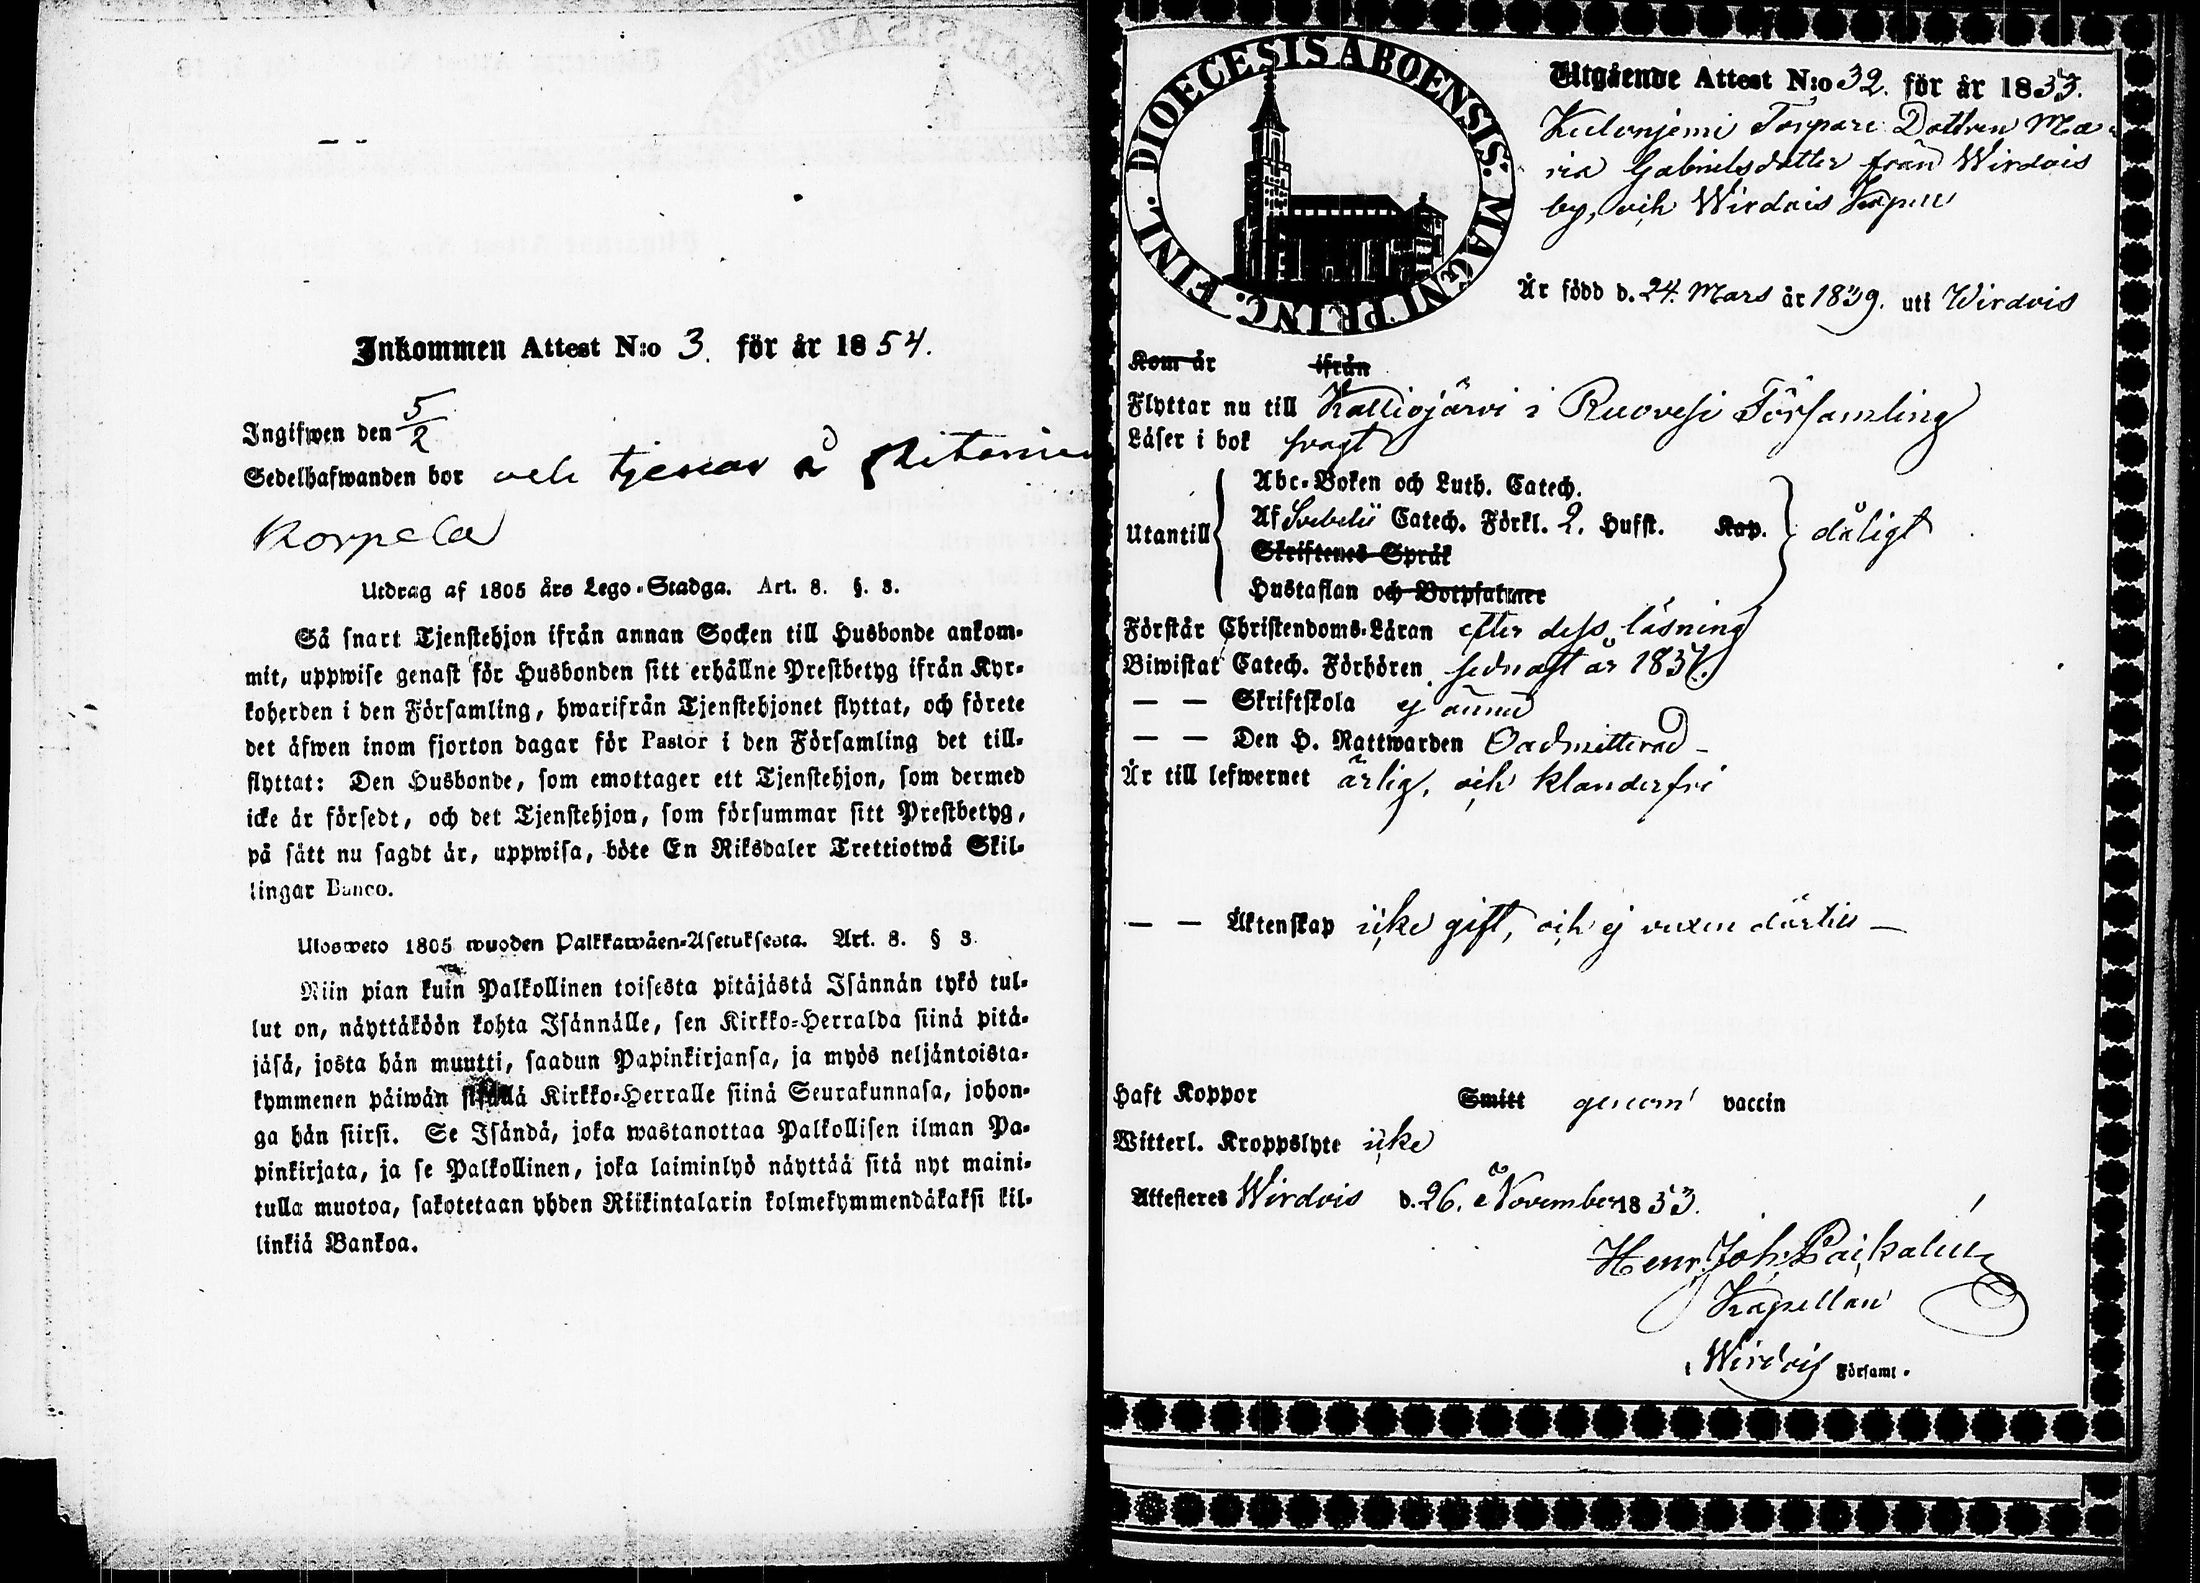 Inkommen Attest N:o 3. för år 1854.
Ingifwen den 5/2
Sedelhafwanden bor och tjenar å
Korpela
Utdrag af 1805 års Lego-Stadga. Art. 8. §. 3.
Så snart Tjenstehjon ifrån annan Socken till Husbonde ankom-
mit, uppwise genast för Husbonden sitt erhållne Prestbetyg ifrån Kyr-
koherden i den Församling, hwarifrån Tjenstehjonet flyttat, och förete
det äfwen inom fjorton dagar för Pastor i den Församling det till-
flyttat: Den Husbonde, som emottager ett Tjenstehjon, som dermed
icke är försedt, och det Tjenstehjon, som försummar sitt Prestbetyg,
på sätt nu sagdt är, uppwisa, böte En Riksdaler Trettiotwå Skil-
lingar Banco.
Ulosweto 1805 wuoden Palkkawäen-Asetuksesta. Art. 8. § 3.
Niin pian kuin Palkollinen toisesta pitäjästä Isännän tykö tul-
lut on, näyttäköön kohta Isännälle, sen Kirkko-Herralda siinä pitä-
jäsä, josta hän muutti, saadun Papinkirjansa, ja myös neljäntoista-
kymmenen päiwän sisällä Kirkko-Herralle siinä Seurakunnasa, johon-
ga hän siirsi. Se Isändä, joka wastanottaa Palkollisen ilman Pa-
pinkirjata, ja se Palkollinen, joka laiminlyö näyttää sitä nyt maini-
tulla muotoa, sakotetaan yhden Riikintalarin kolmekymmendäkaksi kil-
linkiä Bankoa.
DIOECESIS ABOENSIS. MAGNI PRINC. FINL.
Utgående Attest N:o 32. för år 1853.
Kulonjemi Torpare Dottren Ma-
ria Gabrielsdotter från Wirdois
by, och Wirdois Kapell
Är född d. 24. Mars år 1839. uti Wirdois
Kom år ifrån
Flyttar nu till Kalliojärvi i Ruovesi Församling
Läser i bok svagt
Utantill
Abc-Boken och Luth. Catech.
Af Svebelii Catech. Förkl. 2. Hufst. Kap.
Skriftenes Språk
Hustaflan och Botpsalmer
dåligt
Förstår Christendoms-Läran efter dess läsning
Biwistat Catech. Förhören sednast år 185
— — Skriftskola ej ännu
— — Den H. Nattwarden Oadmitterad —
Är till lefwernet ärlig, och klanderfri
— — Äktenskap icke gift, och ej vuxen därtill —
Haft Koppor Smitt genom vaccin
Witterl. Kroppslyte icke
Attesteres Wirdois d. 26. November 1853.
Henr. Joh.
Kapellan
i Wirdois Församl.